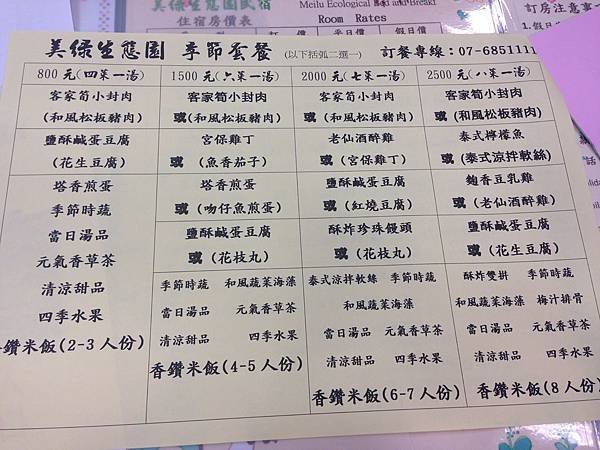 美綠生態園民宿
Meilu Ecological Bed and Breakf
住宿房價表
Room Rates
訂房注意事
美綠生態園 季節套餐 (以下括弧二選一) 訂餐專線:07-6851111
800 元(四菜一湯)
客家筍小封肉
(和風松板豬肉)
鹽酥鹹蛋豆腐
(花生豆腐)
塔香煎蛋
季節時蔬
當日湯品
元氣香草茶
清涼甜品
四季水果
香鑽米飯(2-3 人份)
1500 元(六菜一湯)
客家筍小封肉
或(和風松板豬肉)
宮保雞丁
或 (魚香茄子)
塔香煎蛋
或 (吻仔魚煎蛋)
鹽酥鹹蛋豆腐
或 (花枝丸)
季節時蔬 和風蔬菜海藻
當日湯品 元氣香草茶
清涼甜品 四季水果
香鑽米飯(4-5 人份)
2000 元(七菜一湯)
客家筍小封肉
或(和風松板豬肉)
老仙酒醉雞
或 (宮保雞丁)
鹽酥鹹蛋豆腐
或 (紅燒豆腐)
酥炸珍珠饅頭
或 (花枝丸)
泰式涼拌軟絲 季節時蔬
和風蔬菜海藻
當日湯品 元氣香草茶
清涼甜品 四季水果
香鑽米飯(6-7 人份)
2500 元(八菜一湯)
客家筍小封肉
或(和風松板豬肉)
泰式檸檬魚
或(泰式涼拌軟絲)
麴香豆乳雞
或(老仙酒醉雞)
鹽酥鹹蛋豆腐
或 (花生豆腐)
酥炸雙拼 季節時蔬
和風蔬菜海藻 梅汁排骨
當日湯品 元氣香草茶
清涼甜品 四季水果
香鑽米飯(8 人份)